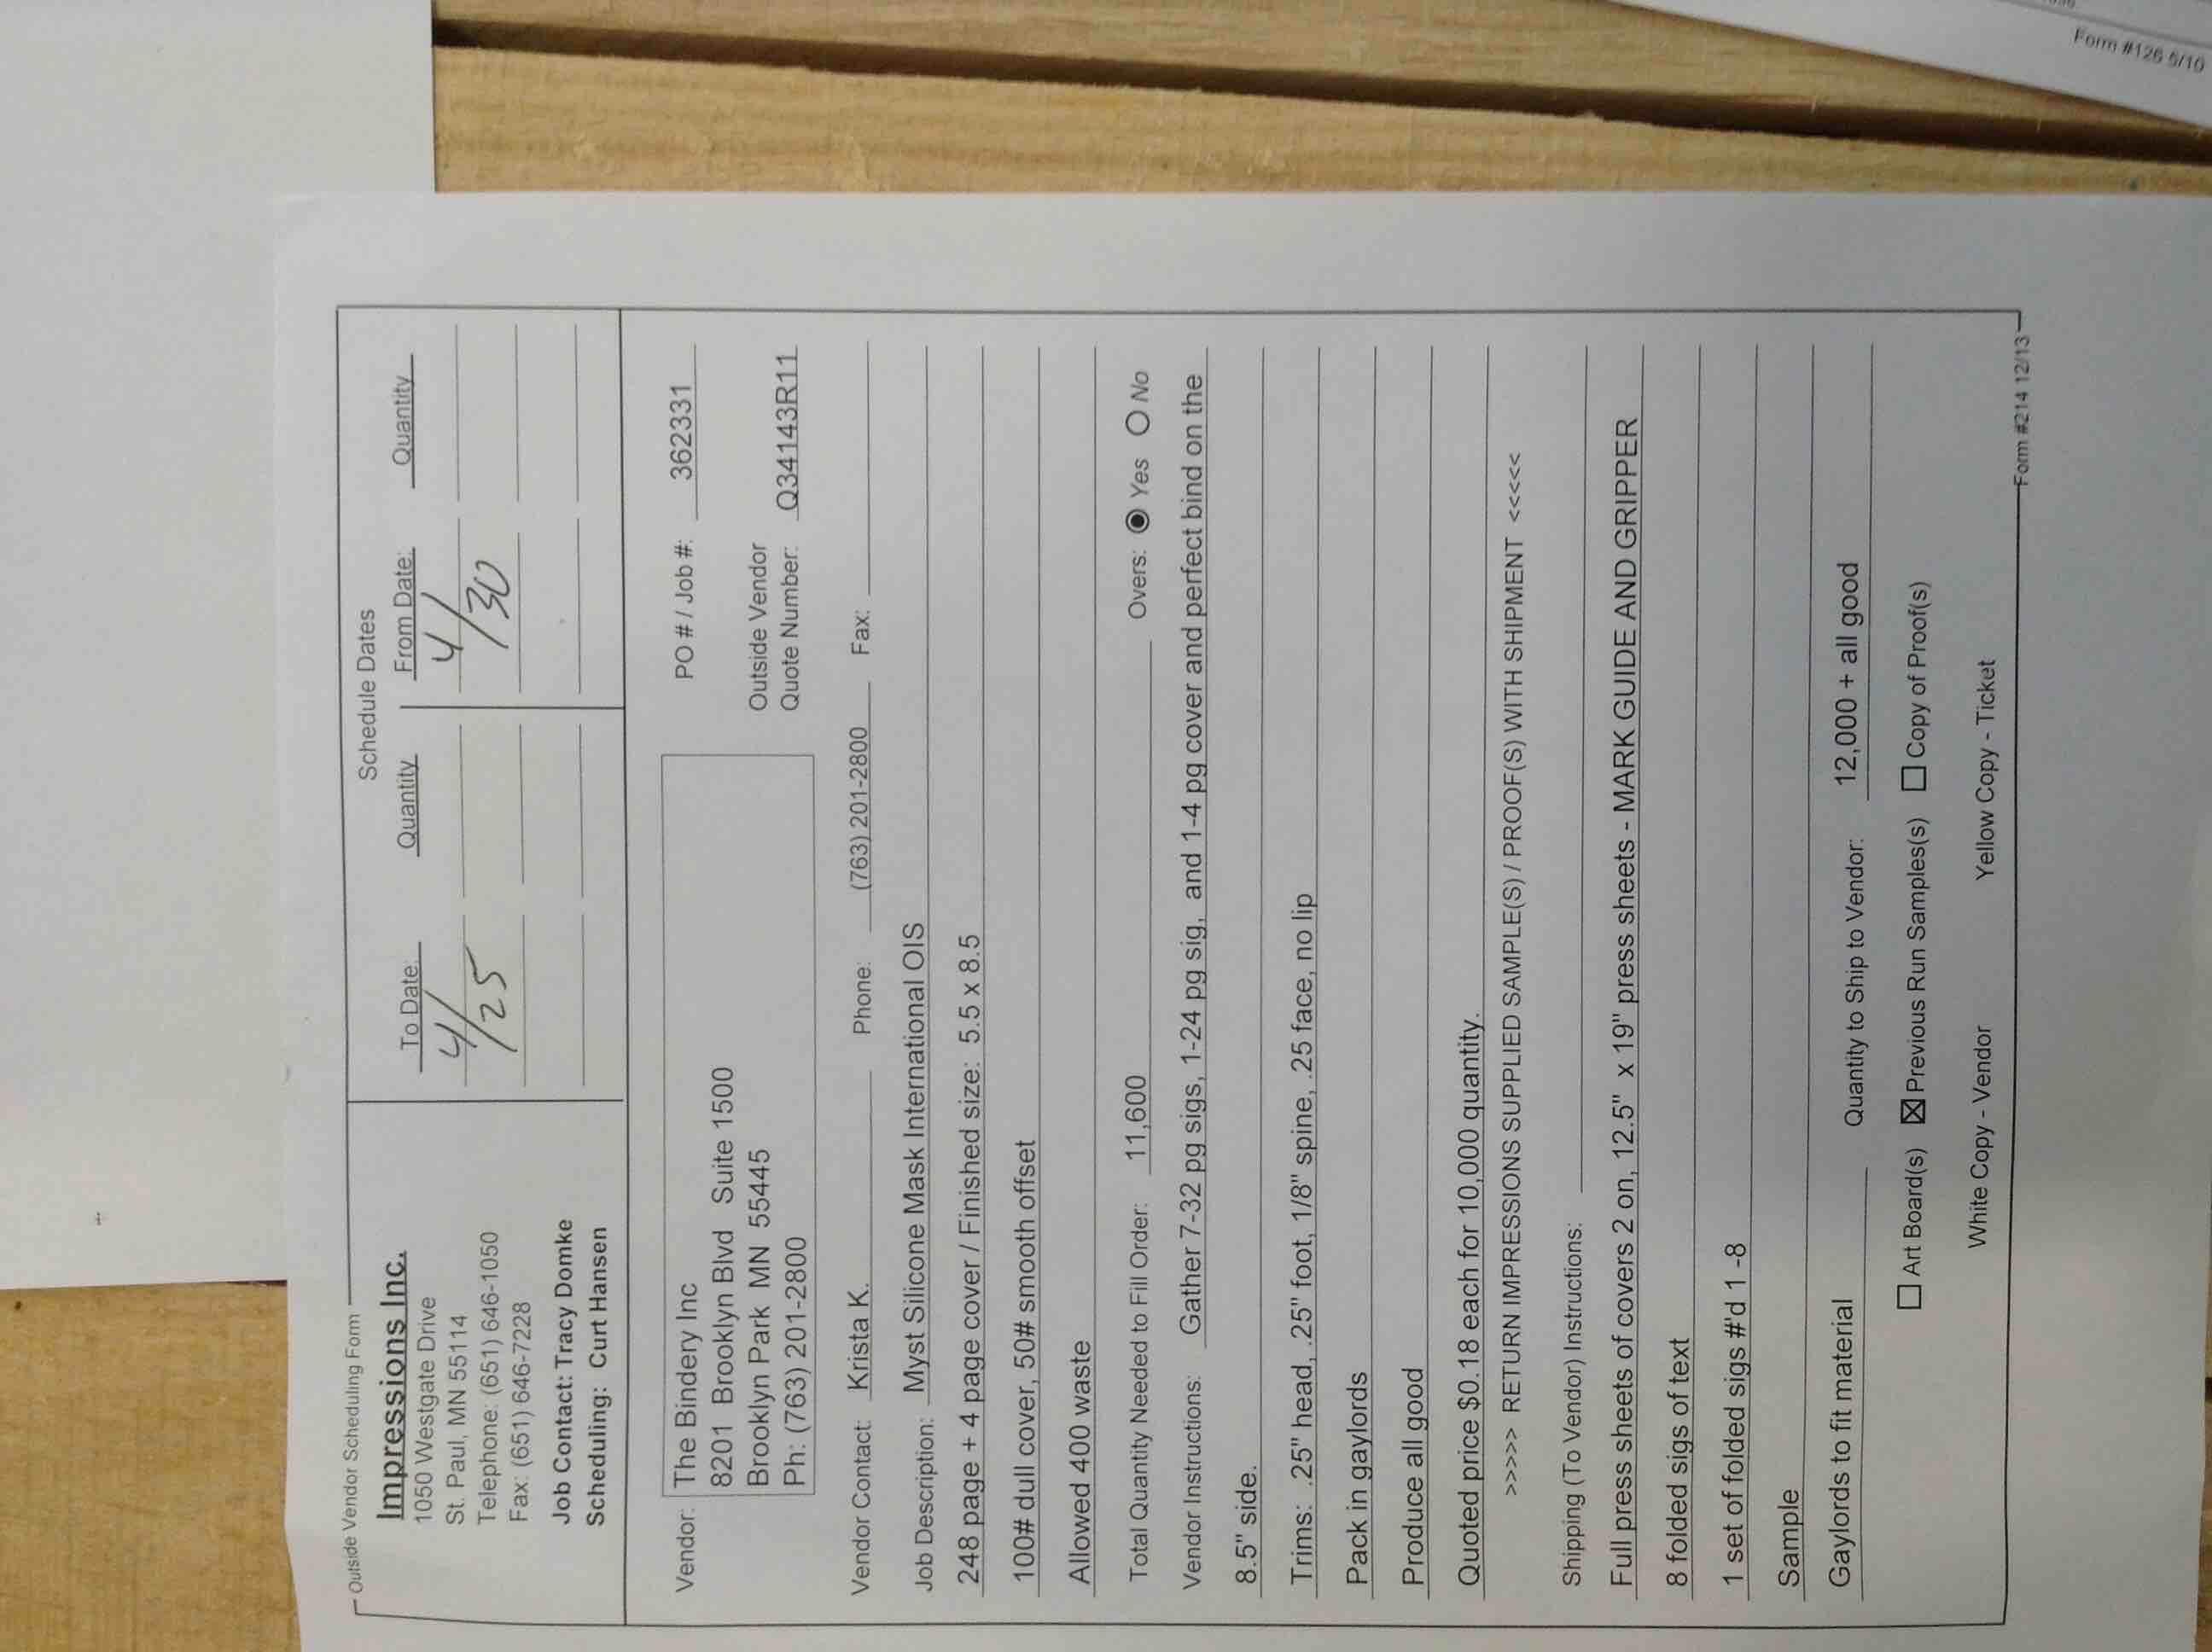 Outside Vendor Scheduling Form
Impressions Inc.
1050 Westgate Drive
St. Paul, MN 55114
Telephone: (651) 646-1050
Fax: (651) 646-7228
Job Contact: Tracy Domke
Scheduling: Curt Hansen
Schedule Dates
To Date: Quantity From Date: Quantity
4/25 4/30
Vendor: The Bindery Inc
8201 Brooklyn Blvd Suite 1500
Brooklyn Park MN 55445
Ph: (763) 201-2800
PO # / Job #: 362331
Outside Vendor
Quote Number: Q34143R11
Vendor Contact: Krista K. Phone: (763) 201-2800 Fax:
Job Description: Myst Silicone Mask International OIS
248 page + 4 page cover / Finished size: 5.5 x 8.5
100# dull cover, 50# smooth offset
Allowed 400 waste
Total Quantity Needed to Fill Order: 11,600 Overs: Yes No
Vendor Instructions: Gather 7-32 pg sigs, 1-24 pg sig, and 1-4 pg cover and perfect bind on the
8.5" side.
Trims: .25" head, .25" foot, 1/8" spine, .25 face, no lip
Pack in gaylords
Produce all good
Quoted price $0.18 each for 10,000 quantity.
>>>>> RETURN IMPRESSIONS SUPPLIED SAMPLE(S) / PROOF(S) WITH SHIPMENT <<<<<
Shipping (To Vendor) Instructions:
Full press sheets of covers 2 on, 12.5" x 19" press sheets - MARK GUIDE AND GRIPPER
8 folded sigs of text
1 set of folded sigs #'d 1 -8
Sample
Gaylords to fit material Quantity to Ship to Vendor: 12,000 + all good
Art Board(s) Previous Run Samples(s) Copy of Proof(s)
White Copy - Vendor Yellow Copy - Ticket
Form #214 12/13
Form #126 5/10